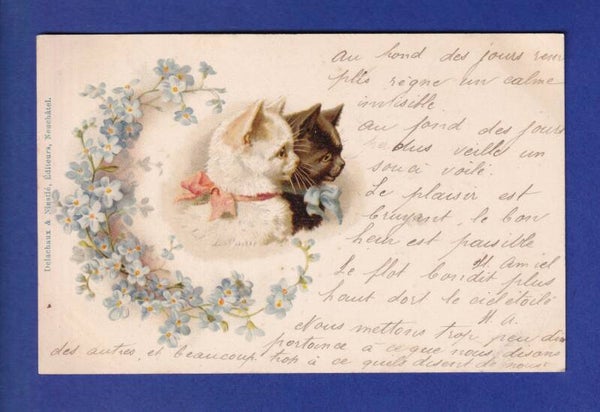 Delachaux & Niestlé, Éditeurs, Neuchâtel.
au fond des jours rem
plis règne un calme
invisible.
au fond des jours
plus veille un
souci voilé.
Le plaisir est
bruyant, le bon
heur est paisible
H. Amiel
Le flot bondit plus
haut dort le ciel étoilé
H. A.
Nous mettons trop peu d'im
portance à ce que nous disons
des autres, et beaucoup trop à ce qu'ils disent de nous